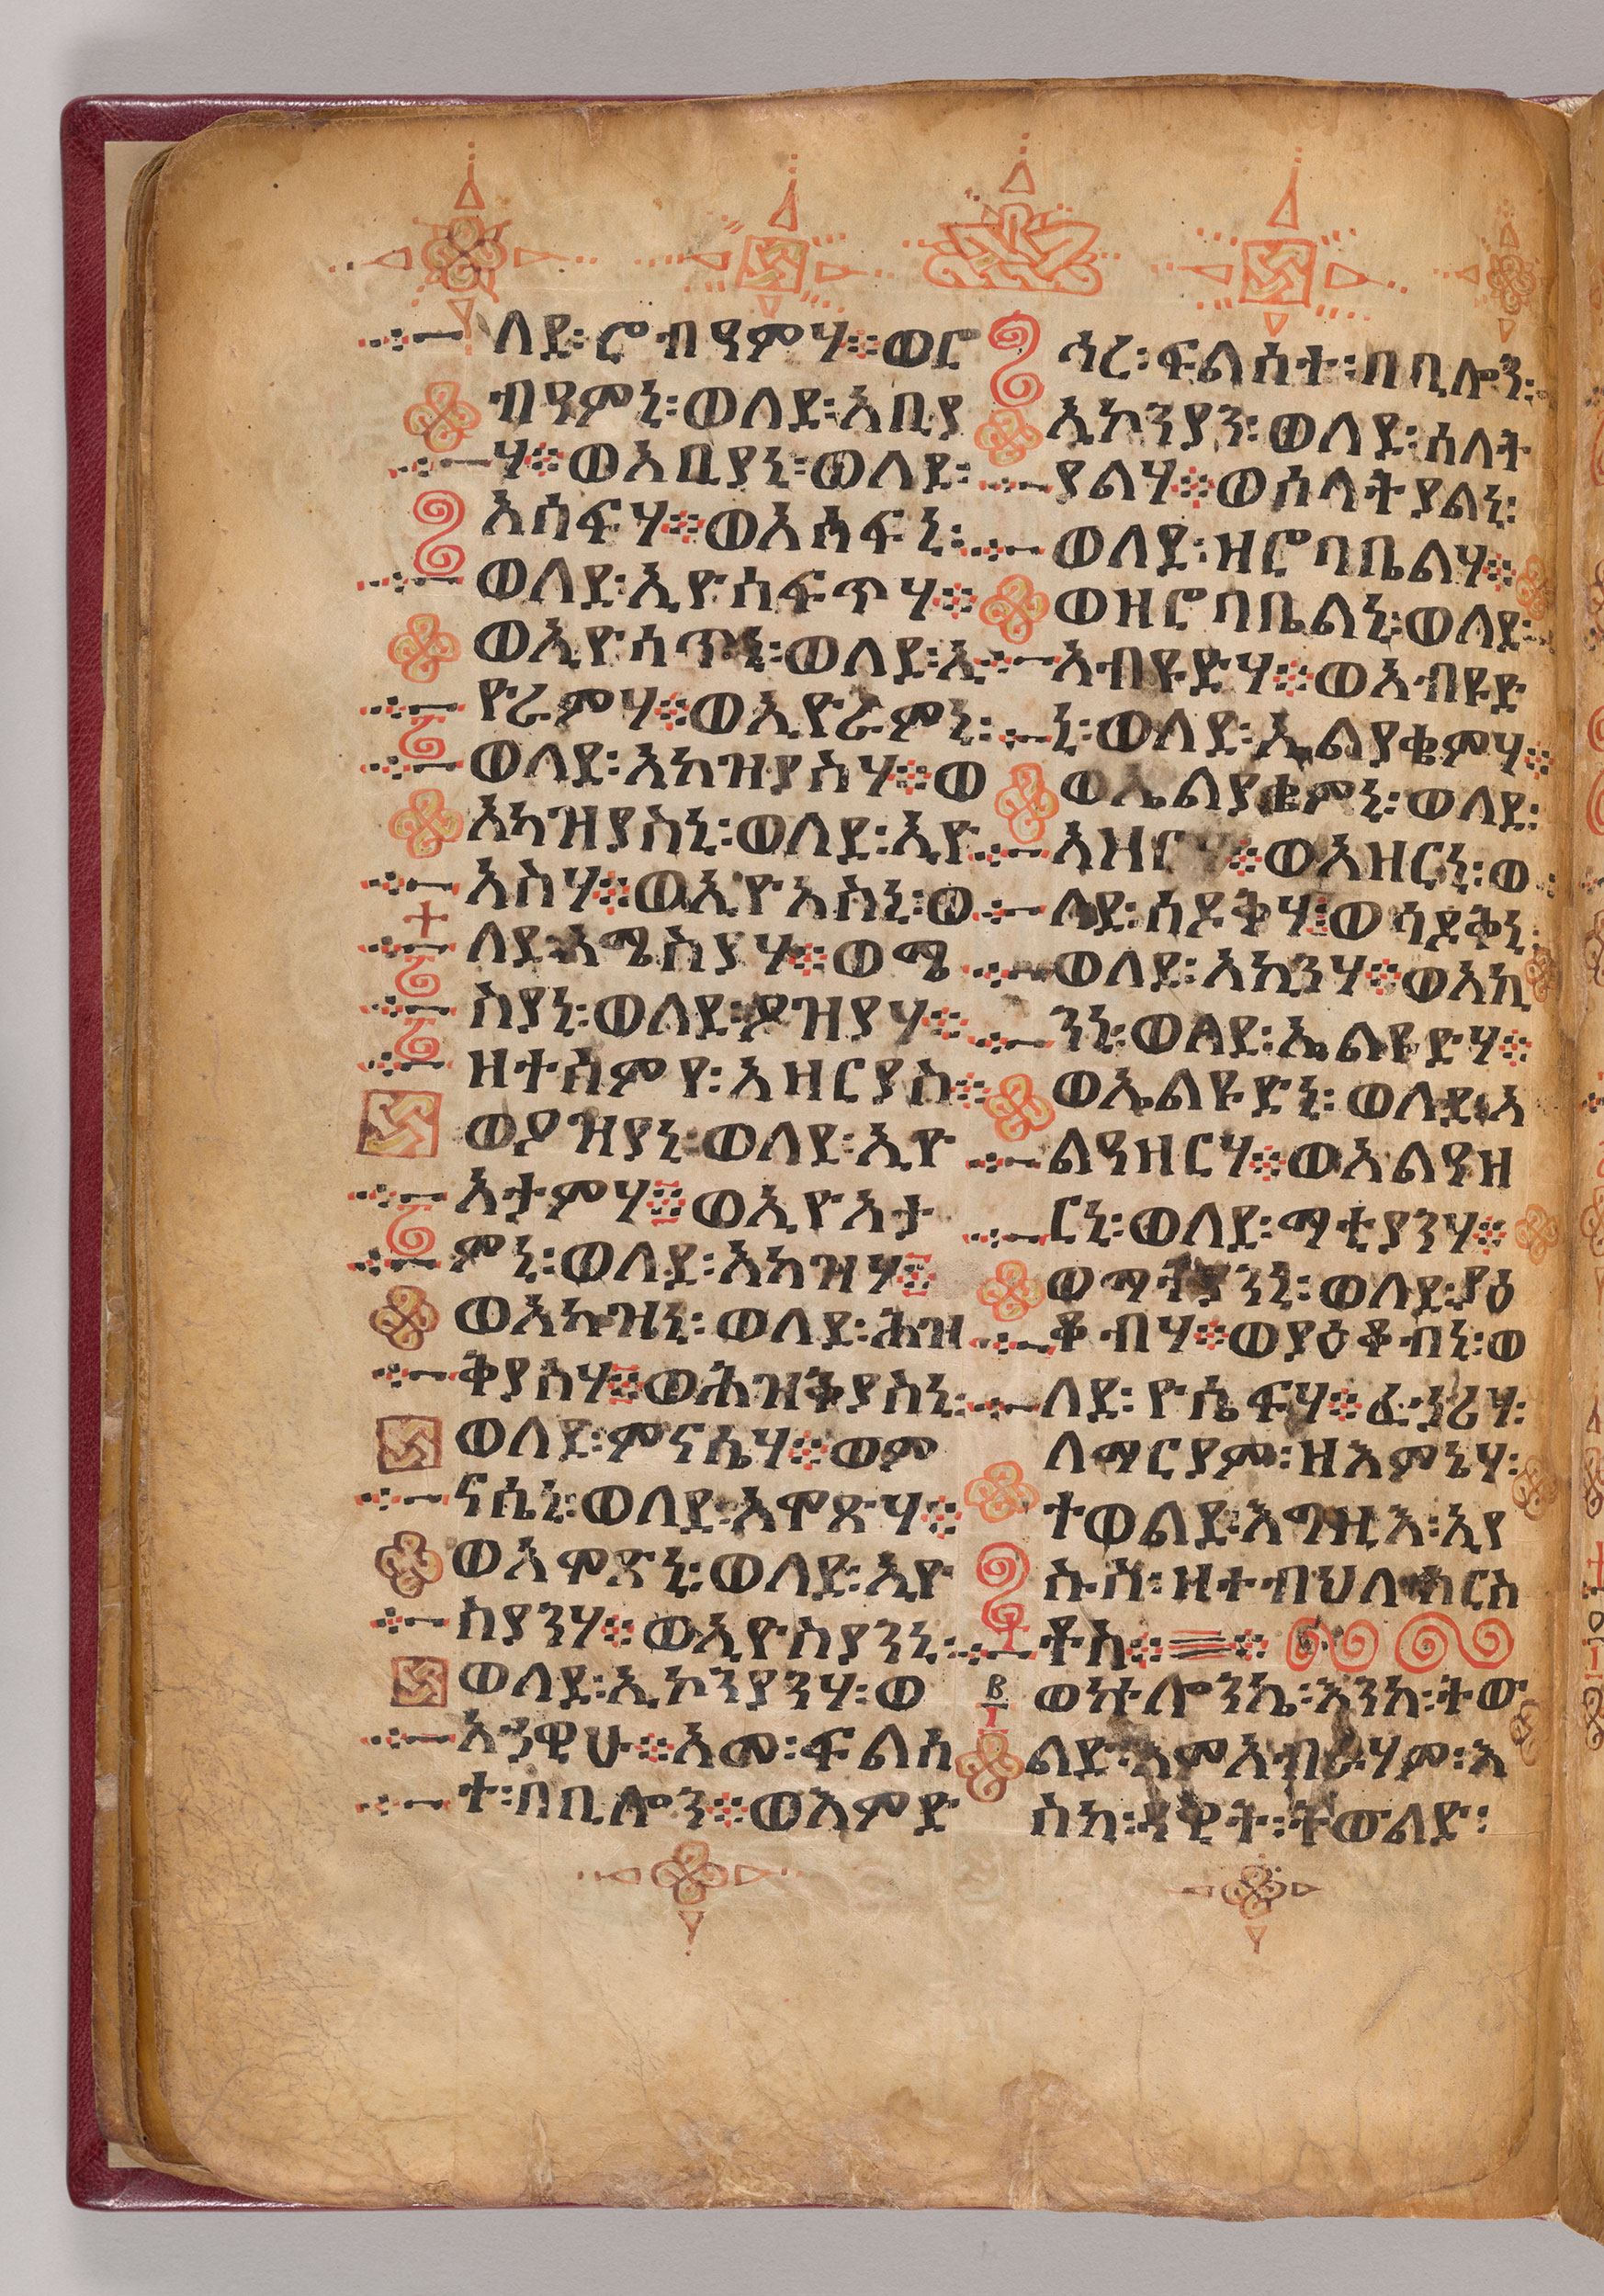 ለደ፡ ሮብዓምሃ፨ ወሮ
ብዓምኒ፡ ወለደ፡ አቢያ
ሃ፨ ወአቢያኒ፡ ወለደ፡
አሰፍሃ፨ ወአሳፍኒ፡
ወለደ፡ ኢዮሰፍጥሃ፨
ወኢዮሳጥኒ፡ ወለደ፡ ኢ
ዮራምሃ፨ ወኢዮራምኒ፡
ወለደ፡ አካዝያስሃ፨ ወ
አካዝያስኒ፡ ወለደ፡ ኢዮ
አስሃ፨ ወኢዮአስኒ፡ ወ
ለደ፡ አሜስያሃ፨ ወሜ
ስያኒ፡ ወለደ፡ ዖዝያሃ፨
ዘተሰምየ፡ አዘርያስ፨
ወዖዝያኒ፡ ወለደ፡ ኢዮ
አታምሃ፨ ወኢዮአታ
ምኒ፡ ወለደ፡ አካዝሃ፨
ወአካዝኒ፡ ወለደ፡ ሕዝ
ቅያስሃ፨ ወሕዝቅያስኒ፡
ወለደ፡ ምናሴሃ፨ ወም
ናሴኒ፡ ወለደ፡ አሞጽሃ፨
ወአሞጽኒ፡ ወለደ፡ ኢዮ
ስያንሃ፨ ወኢዮስያንኒ፡
ወለደ፡ ኢኮንያንሃ፡ ወ
አኃዊሁ፨ አመ፡ ፍልሰ
ተ፡ በቢሎን፨ ወእምድ
ኅረ፡ ፍልሰተ፡ በቢሎን፡
ኢኮንያን፡ ወለደ፡ ሰላት
ያልሃ፨ ወሰላትያልኒ፡
ወለደ፡ ዘሮባቤልሃ፨
ወዘሮባቤልኒ፡ ወለደ፡
አብዩድሃ፨ ወአብዩድ
ኒ፡ ወለደ፡ ኤልያቄምሃ፨
ወኤልያቄምኒ፡ ወለደ፡
አዛር ፨ ወአዛርኒ፡ ወ
ለደ፡ ሳዶቅሃ፨ ወሳዶቅኒ፡
ወለደ፡ አኪንሃ፨ ወአኪ
ንኒ፡ ወለደ፡ ኤልዩድሃ፨
ወኤልዩድኒ፡ ወለደ፡ አ
ልዓዘርሃ፨ ወአልዓዘ
ርኒ፡ ወለደ፡ ማቲያንሃ፨
ወማትያንኒ፡ ወለደ፡ ያዕ
ቆብሃ፨ ወያዕቆብኒ፡ ወ
ለደ፡ ዮሴፍሃ፨ ፈኃሪሃ፡
ለማርያም፡ ዘእምኔሃ፡
ተወልደ፡ እግዚእ፡ ኢየ
ሱስ፡ ዘተብህለ ክርስ
ቶስ፨
፪ ወኵሎንኬ፡ እንከ፡ ትው
ልድ፡ እምአብራሃም፡ እ
ስከ፡ ዳዊት፡ ትውልድ፡